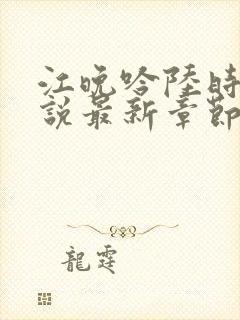 江晚吟陸時
說最新章節
龍霆